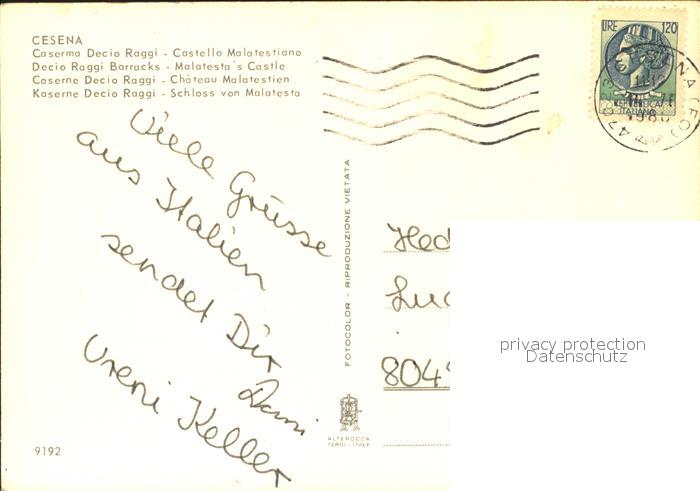 CESENA
Caserma Decio Raggi - Castello Malatestiano
Decio Raggi Barracks - Malatesta's Castle
Caserne Decio Raggi - Château Malatestien
Kaserne Decio Raggi - Schloss von Malatesta
LIRE 120
REPUBBLICA
ITALIANA
Viele Grüsse
aus Italien
sendet Dir
Vreni Keller
FOTOCOLOR - RIPRODUZIONE VIETATA
Hed
Luc
804
privacy protection
Datenschutz
ALTEROCCA
TERNI - ITALY
9192